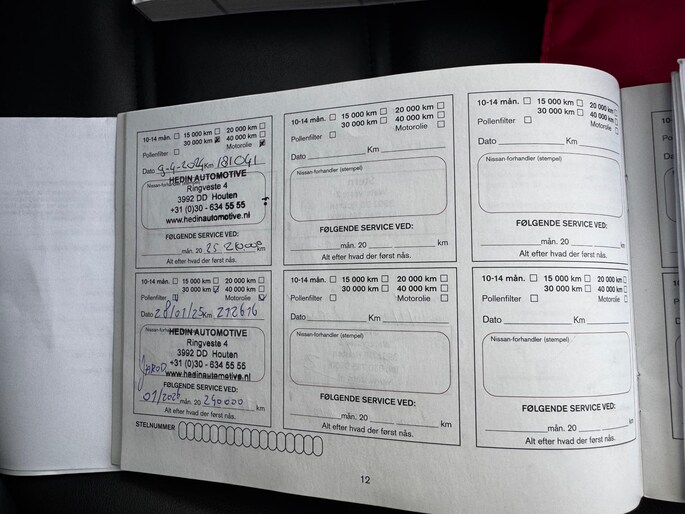 10-14 mån. 15 000 km 20 000 km
30 000 km 40 000 km
Pollenfilter Motorolie
Dato 9-4-2024 Km 181041
Nissan-forhandler (stempel)
HEDIN AUTOMOTIVE
Ringveste 4
3992 DD Houten
+31 (0)30 - 634 55 55
www.hedinautomotive.nl
FØLGENDE SERVICE VED:
mån. 20 25 km
Alt efter hvad der først nås.
10-14 mån. 15 000 km 20 000 km
30 000 km 40 000 km
Pollenfilter Motorolie
Dato Km
Nissan-forhandler (stempel)
FØLGENDE SERVICE VED:
mån. 20 km
Alt efter hvad der først nås.
10-14 mån. 15 000 km 20 000 km
30 000 km 40 000 km
Pollenfilter Motorolie
Dato Km
Nissan-forhandler (stempel)
FØLGENDE SERVICE VED:
mån. 20 km
Alt efter hvad der først nås.
10-14 mån. 15 000 km 20 000 km
30 000 km 40 000 km
Pollenfilter Motorolie
Dato 28/01/25 Km 212616
HEDIN AUTOMOTIVE
Ringveste 4
3992 DD Houten
+31 (0)30 - 634 55 55
www.hedinautomotive.nl
JAROD
FØLGENDE SERVICE VED:
01/2026 mån. 20 240000 km
Alt efter hvad der først nås.
10-14 mån. 15 000 km 20 000 km
30 000 km 40 000 km
Pollenfilter Motorolie
Dato Km
Nissan-forhandler (stempel)
FØLGENDE SERVICE VED:
mån. 20 km
Alt efter hvad der først nås.
10-14 mån. 15 000 km 20 000 km
30 000 km 40 000 km
Pollenfilter Motorolie
Dato Km
Nissan-forhandler (stempel)
FØLGENDE SERVICE VED:
mån. 20 km
Alt efter hvad der først nås.
STELNUMMER
12